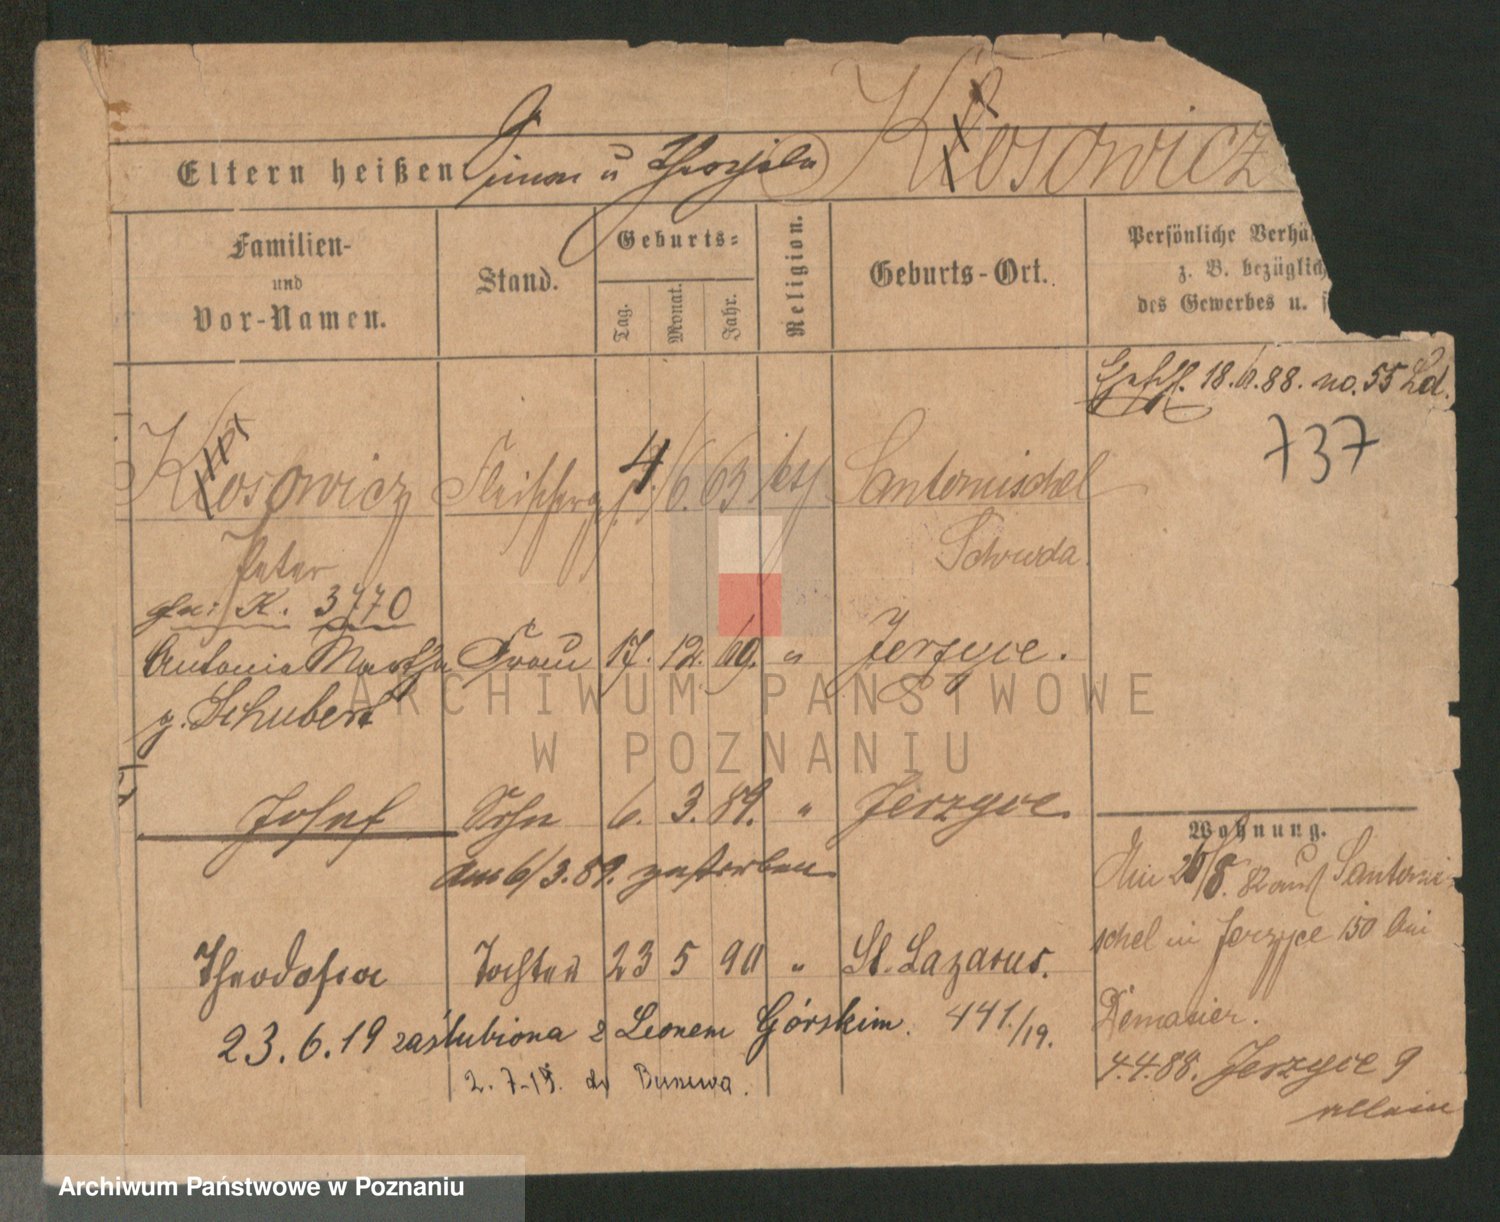 Eltern heißen Simon u Kłosowicz
Familien-
und
Vor-Namen.
Stand.
Geburts-
Tag.
Monat.
Jahr.
Religion.
Geburts-Ort.
Persönliche Verhä
z. B. bezüglich
des Gewerbes u.
18.6.88. no. 55 Ld.
737
Kłosowicz Fleischerg 4. 6. 63 kth Santomischel
Peter Schroda
K. 3770
Antonia Martha Frau 17. 12. 69. " Jerzyce.
g. Schubert
Josef Sohn 6. 3. 89. " Jerzyce.
am 6/3.89. gestorben
Wohnung.
82 aus Santomi-
schel in Jerzyce 150 bei
Theodosia Tochter 23 5 90 " St. Lazarus.
23.6.19 zaślubiona z Leonem Górskim. 441./19.
4.4.88. Jerzyce 9
allein
2.7.19. do Bukowa.
ARCHIWUM PAŃSTWOWE
W POZNANIU
Archiwum Państwowe w Poznaniu